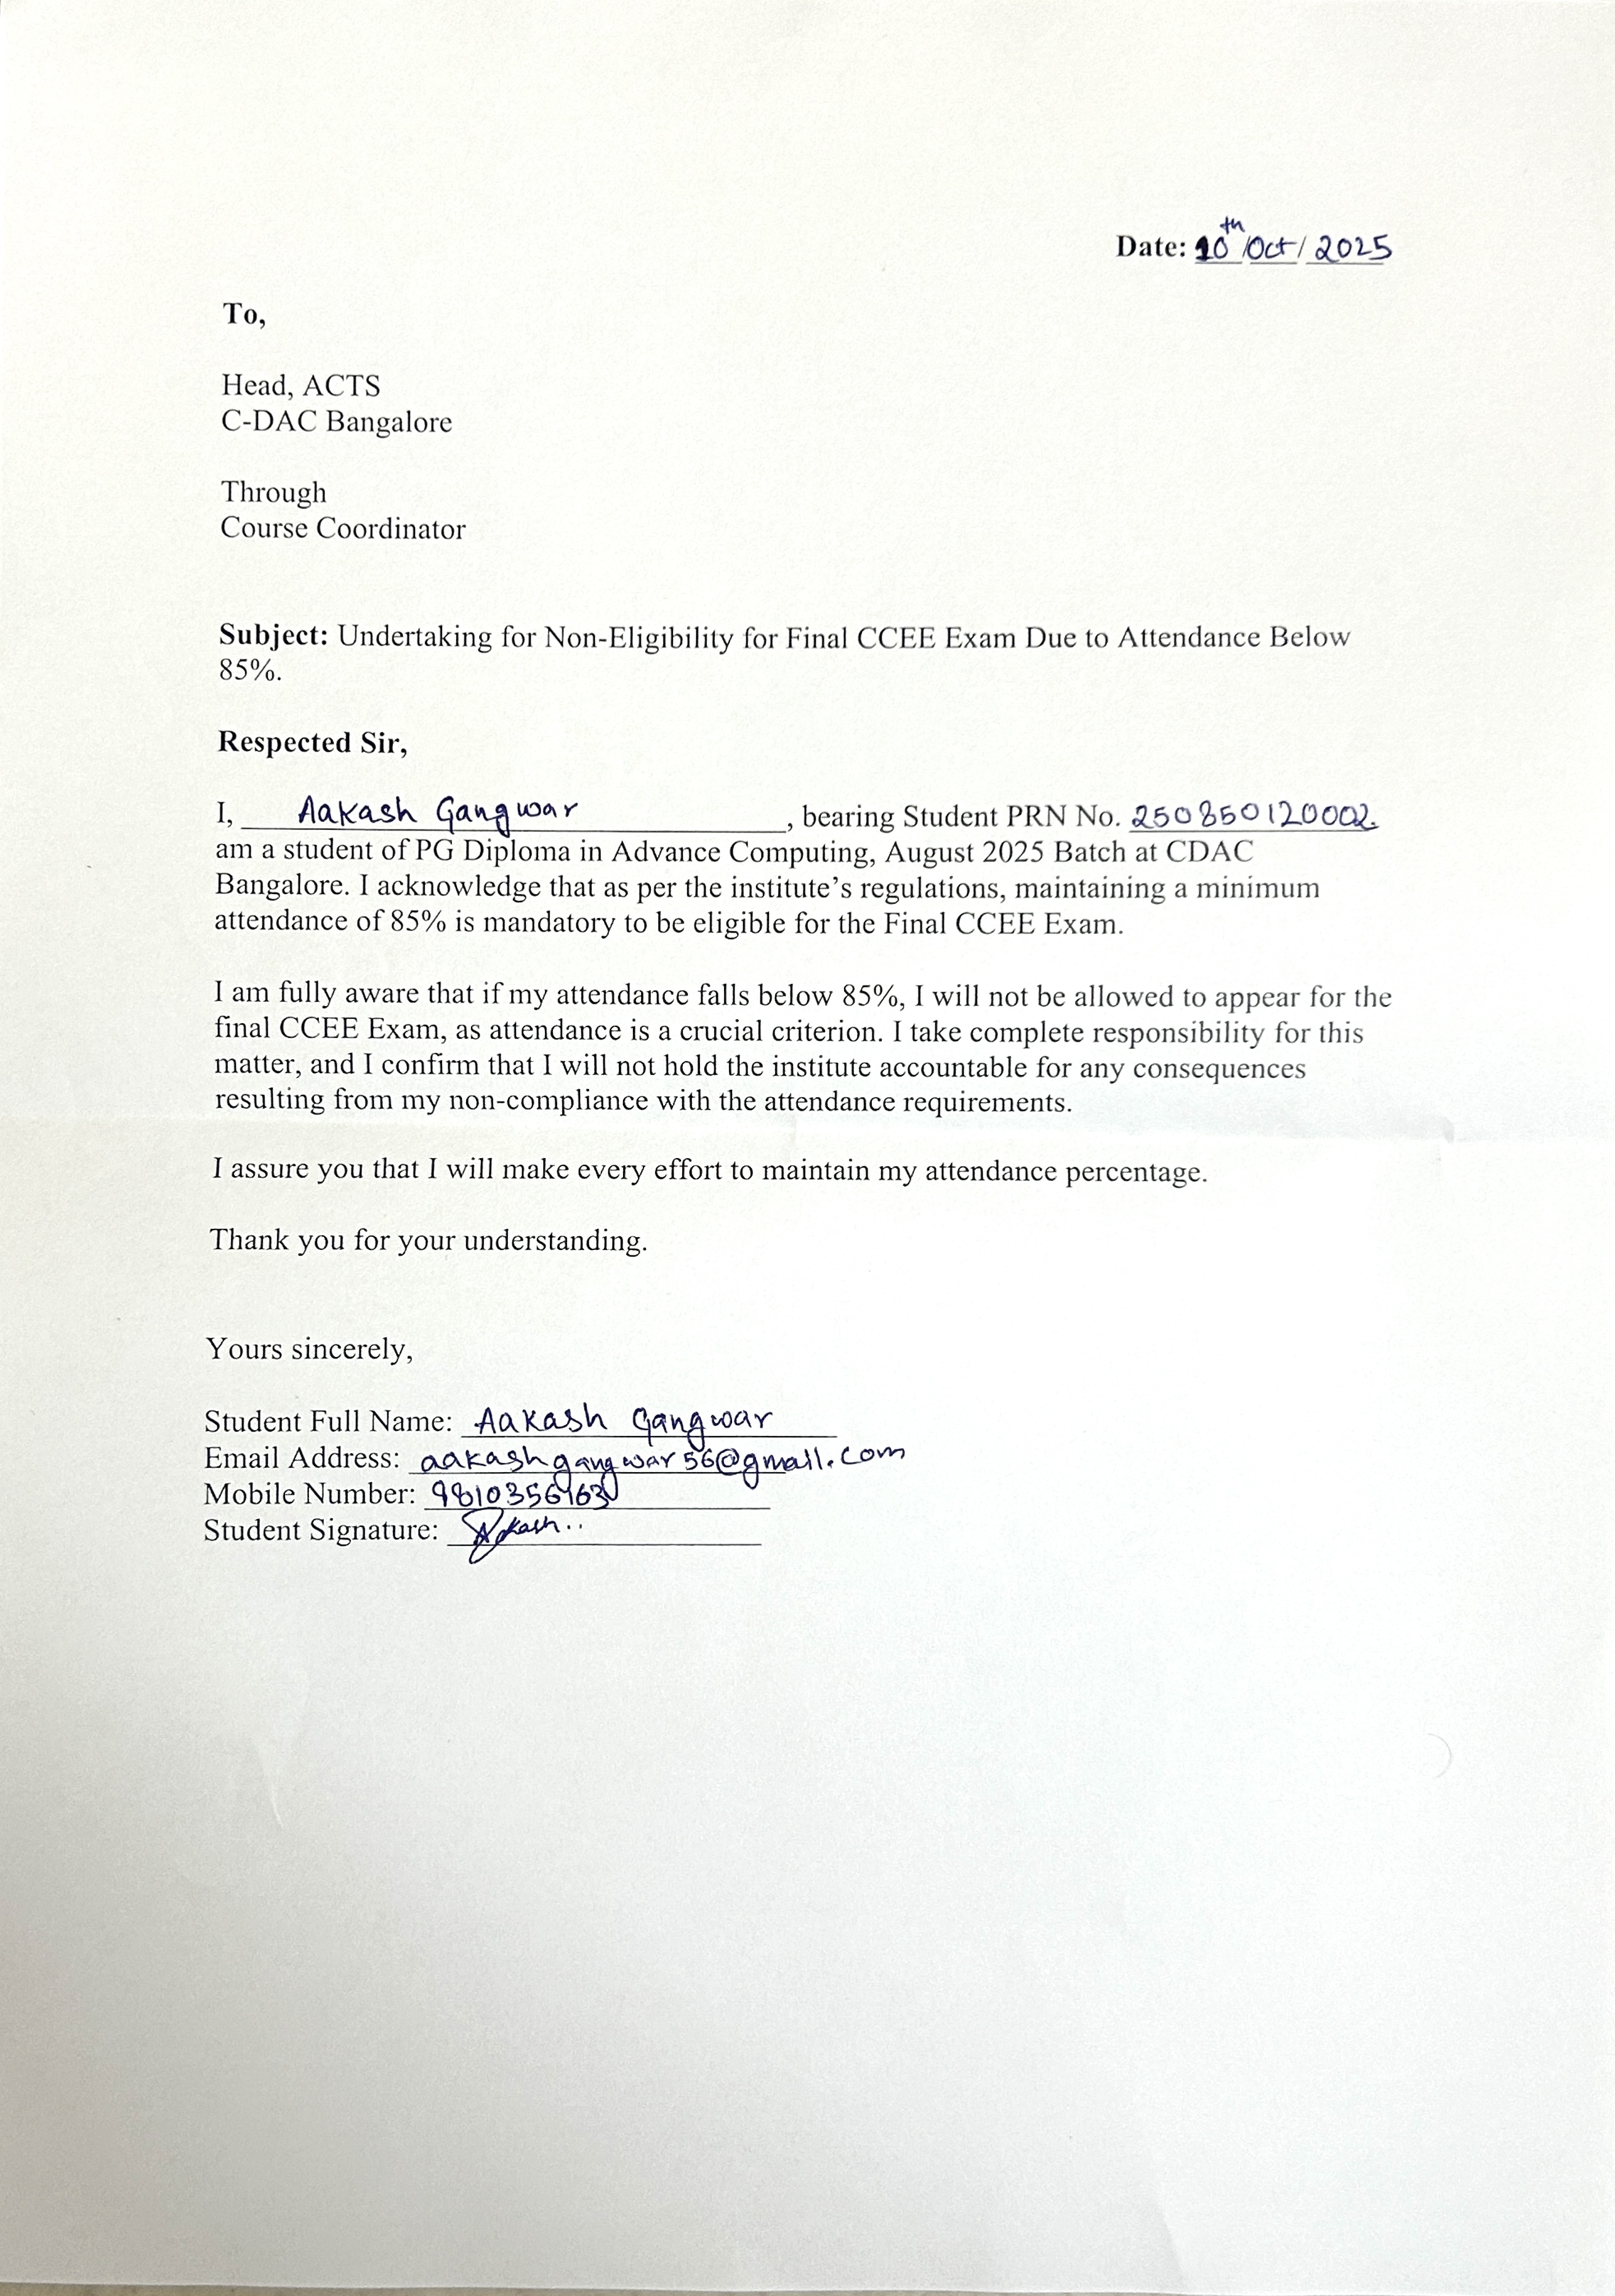 Date: 10th/Oct/2025
To,
Head, ACTS
C-DAC Bangalore
Through
Course Coordinator
Subject: Undertaking for Non-Eligibility for Final CCEE Exam Due to Attendance Below
85%.
Respected Sir,
I, Aakash Gangwar, bearing Student PRN No. 250850120002.
am a student of PG Diploma in Advance Computing, August 2025 Batch at CDAC
Bangalore. I acknowledge that as per the institute’s regulations, maintaining a minimum
attendance of 85% is mandatory to be eligible for the Final CCEE Exam.
I am fully aware that if my attendance falls below 85%, I will not be allowed to appear for the
final CCEE Exam, as attendance is a crucial criterion. I take complete responsibility for this
matter, and I confirm that I will not hold the institute accountable for any consequences
resulting from my non-compliance with the attendance requirements.
I assure you that I will make every effort to maintain my attendance percentage.
Thank you for your understanding.
Yours sincerely,
Student Full Name: Aakash Gangwar
Email Address: aakashgangwar56@gmail.com
Mobile Number:
Student Signature: Akash..